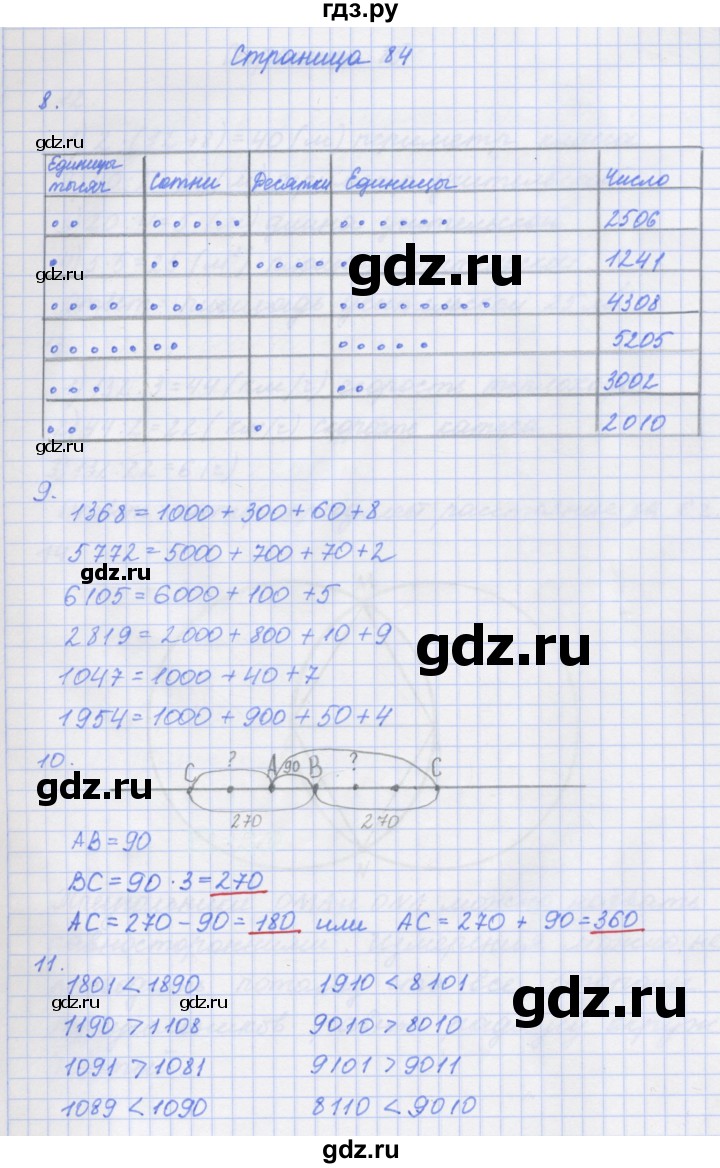 гдз.ру
Страница 84
8.
gdz.ru
Единицы тысяч Сотни Десятки Единицы Число
2506
gdz.ru
gdz.ru
1241
4308
5205
3002
2010
9.
1368 = 1000 + 300 + 60 + 8
5772 = 5000 + 700 + 70 + 2
gdz.ru
6105 = 6000 + 100 + 5
2819 = 2000 + 800 + 10 + 9
gdz.ru
1047 = 1000 + 40 + 7
1954 = 1000 + 900 + 50 + 4
10.
C ? A 90 B ? C
gdz.ru
270 270
AB = 90
BC = 90 · 3 = 270
AC = 270 - 90 = 180 или AC = 270 + 90 = 360
11.
1801 < 1890 1910 < 8101
gdz.ru gdz.ru gdz.ru
1190 > 1108 9010 > 8010
1091 > 1081 9101 > 9011
1089 < 1090 8110 < 9010
gdz.ru